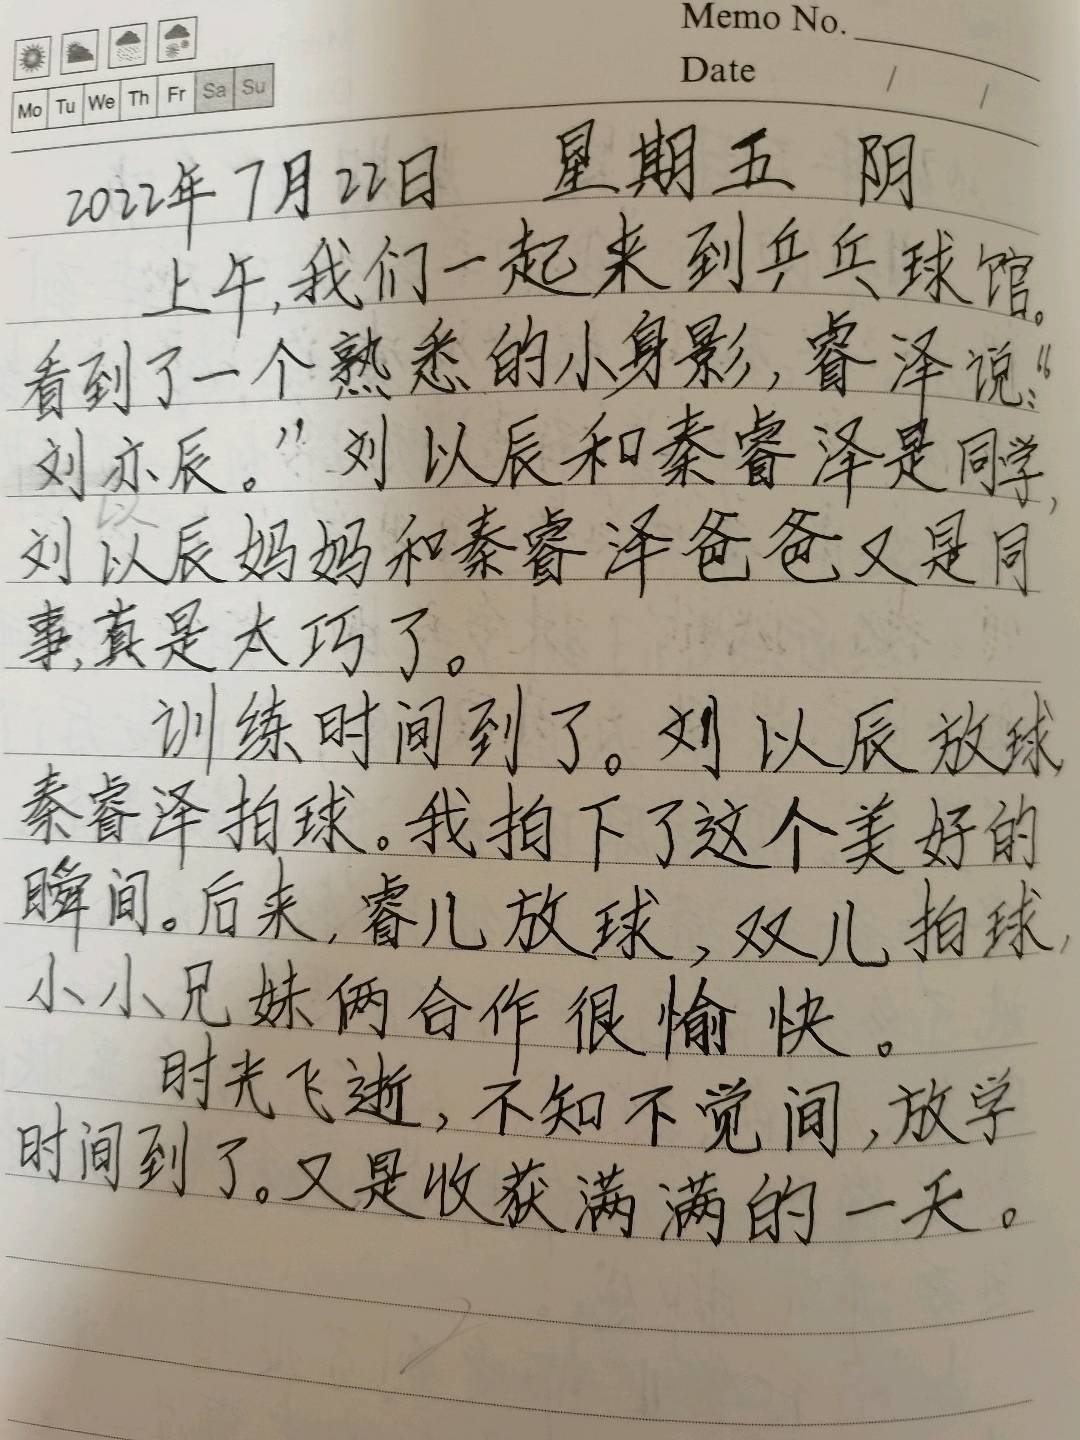 Memo No.
Date / /
Mo Tu We Th Fr Sa Su
2022年7月22日 星期五 阴
上午,我们一起来到乒乓球馆。
看到了一个熟悉的小身影,睿泽说:“
刘亦辰。”刘以辰和秦睿泽是同学,
以
刘以辰妈妈和秦睿泽爸爸又是同
事,真是太巧了。
训练时间到了。刘以辰放球,
秦睿泽拍球。我拍下了这个美好的
瞬间。后来,睿儿放球,双儿拍球,
小小兄妹俩合作很愉快。
时光飞逝,不知不觉间,放学
时间到了。又是收获满满的一天。